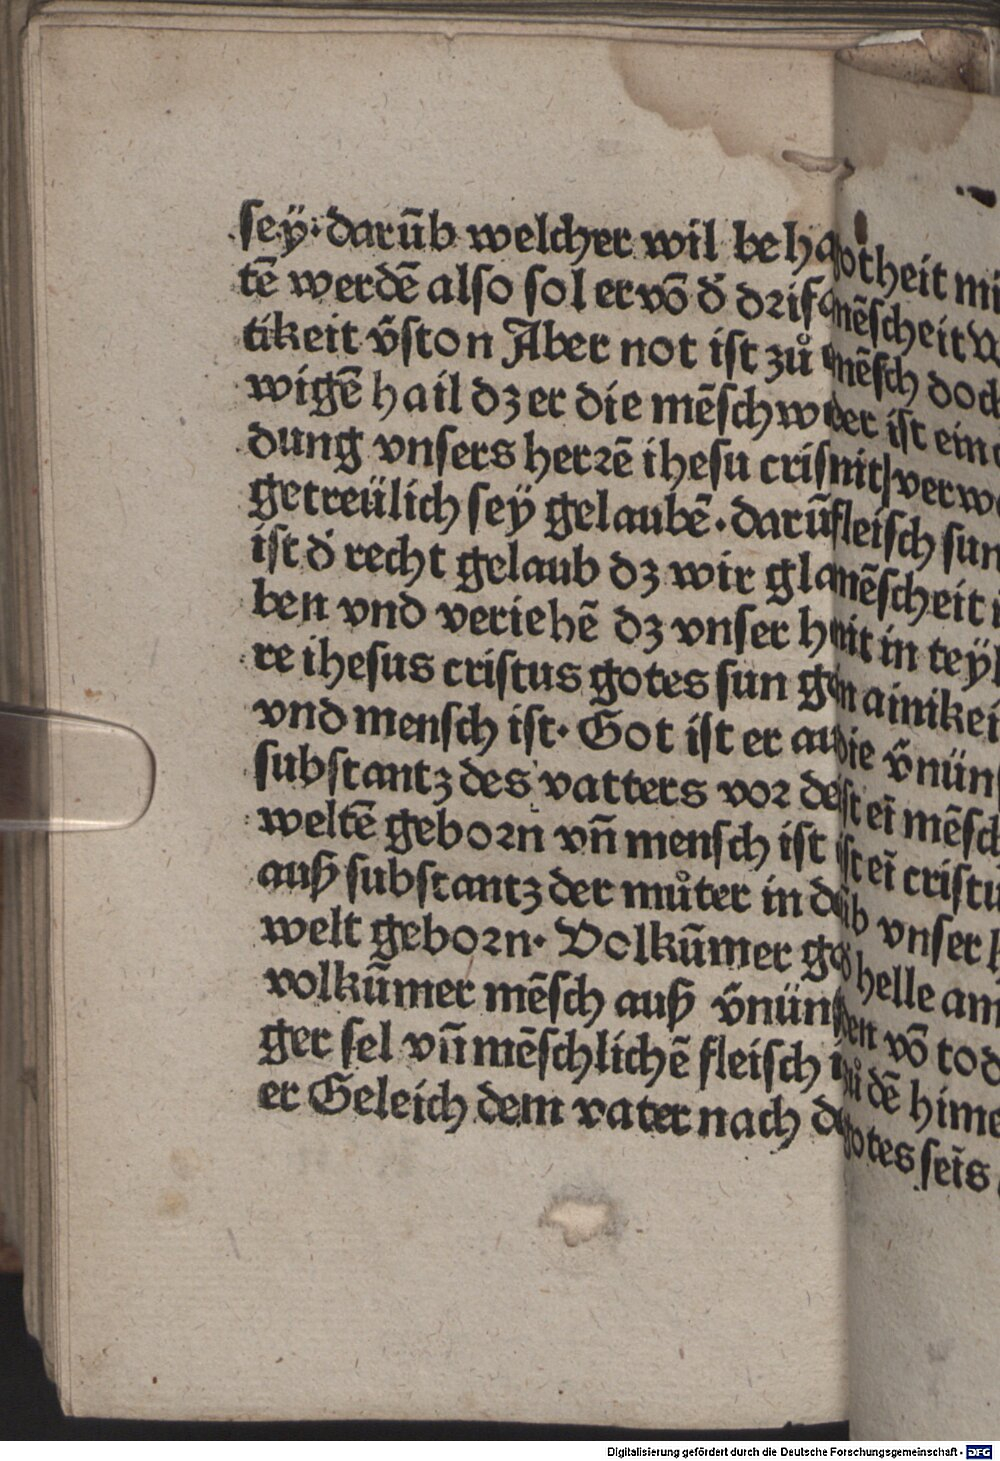 sey·darūb welcher wil beha
tē werdē also sol er vō d̕ drif
tikeit v̄ston Aber not ist zů
wigē hail dz er die mēschw
dung vnsers herrē ihesu cris
getreülich sey gelaubē·darū
ist d̕ recht gelaub dz wir gla
ben vnd veriehē dz vnser h
re ihesus cristus gotes sun go
vnd mensch ist· Got ist er au
substantz des vatters vor de
weltē geborn vn̄ mensch ist
auß substantz der můter in d
welt geborn· Volkūmer go
volkūmer mēsch auß v̄nünf
ger sel vn̄ mēschlichē fleisch
er Geleich dem vater nach d
otheit mi
mēscheit
mēsch doch
der ist ein
nit verw
fleisch sun
mēscheit
nit in teyl
n ainikei
die v̄nün
st eī mēsch
ist eī cristu
ūb vnser
helle am
den vō tod
zů dē hime
gotes seīs
Digitalisierung gefördert durch die Deutsche Forschungsgemeinschaft - DFG